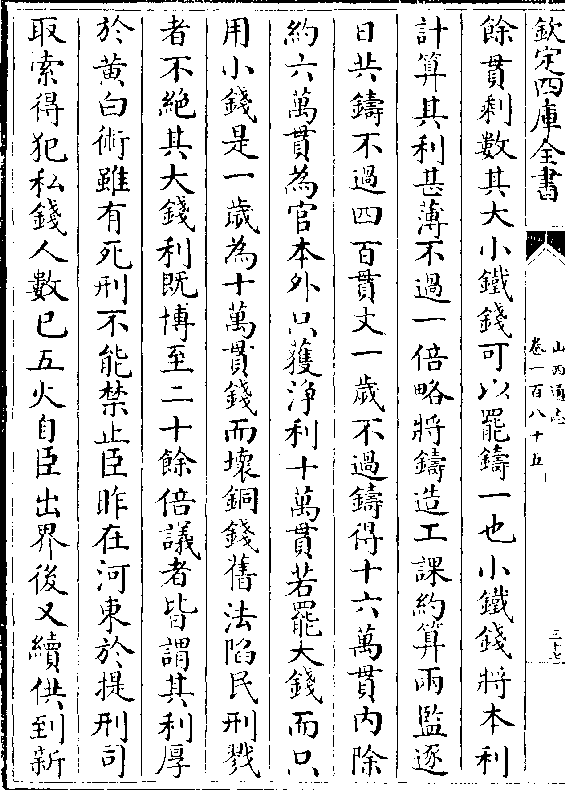 欽定四庫全書
山西通志
卷一百八十五
三十七
餘貫剩數其大小鐵錢可以罷鑄一也小鐵錢將本利
計算其利甚薄不過一倍略將鑄造工課約算兩監逐
日共鑄不過四百貫文一歲不過鑄得十六萬貫内除
約六萬貫為官本外只獲淨利十萬貫若罷大錢而只
用小錢是一歲為十萬貫錢而壞銅錢舊法陷民刑戮
者不絶其大錢利既博至二十餘倍議者皆謂其利厚
於黄白術雖有死刑不能禁止臣昨在河東於提刑司
取索得犯私錢人數已五火自臣出界後又續供到新